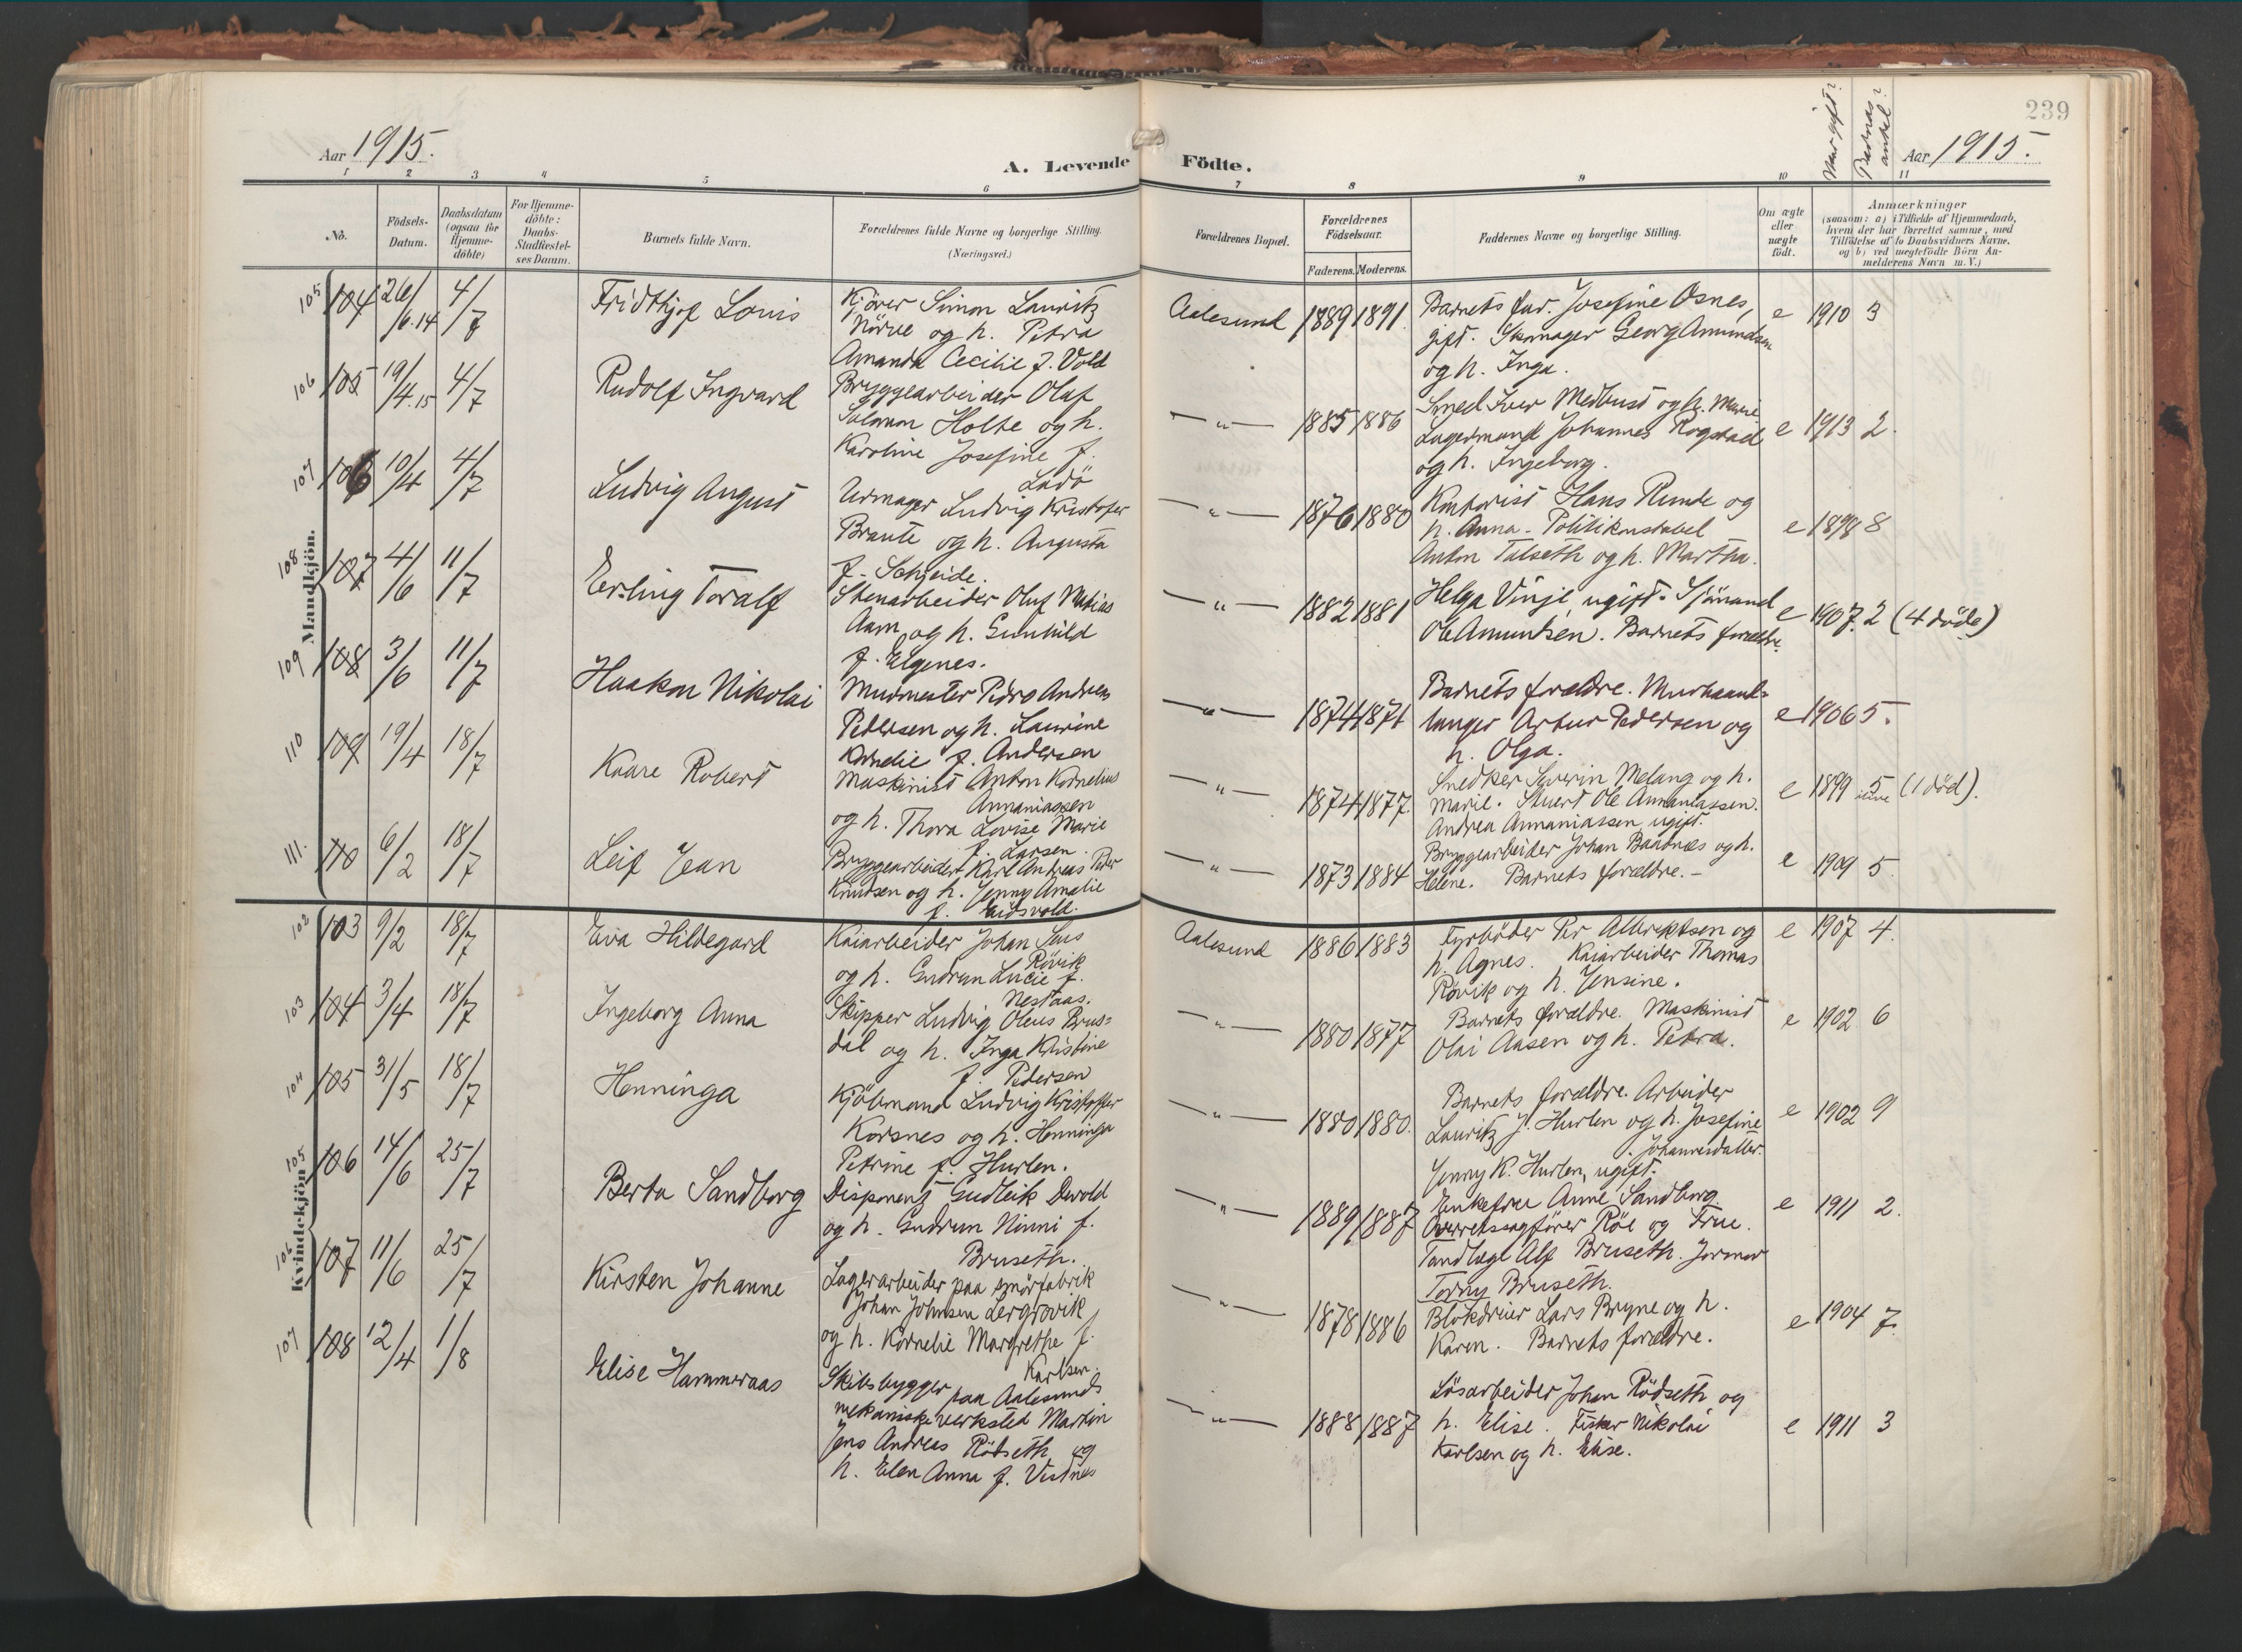 239
Aar 1915.
A. Levende
Födte.
Naar gift?
Barnas antal?
Aar 1915.
1 2 3 4 5 6 7 8 9 10 11
No.
Födsels-
Datum.
Daabsdatum
(ogsaa for
Hjemme-
döbte)
For Hjemme-
döbte:
Daabs-
Stadfæstel-
ses Datum.
Barnets fulde Navn.
Forældrenes fulde Navne og borgerlige Stilling.
(Næringsvei.)
Forældrenes Bopæl.
Forældrenes
Födselsaar.
Faderens. Moderens.
Faddernes Navne og borgerlige Stilling.
Om ægte
eller
uægte
födt.
Anmærkninger
(saasom: a) i Tilfælde af Hjemmedaab,
hvem der har forrettet samme, med
Tilföielse af to Daabsvidners Navne,
og b) ved uægtefödte Börn An-
melderens Navn m. V.)
Mandkjön.
105 104 26/6.14 4/7 Fridthjof Louis
Kjörer Simon Lauritz
Nörve og h. Petra
Amanda Cecilie f. Vold
Aalesund 1889 1891
Barnets far. Josefine Osnes,
gift. Skomager Georg Amundsen
og h. Inga.
e 1910 3
106 105 19/4.15 4/7 Rudolf Ingvard
Bryggearbeider Olaf
Salomon Holte og h.
Karoline Josefine f.
Ladö
— " — 1885 1886
Smed Iver Medbust og h. Marie
Lagermand Johannes Rogstad
og h. Ingeborg.
e 1913 2.
107 106 10/4 4/7 Ludvig August
Urmager Ludvig Kristofer
Braute og h. Augusta
f. Scheide.
— " — 1876 1880
Kontorist Hans Runde og
h. Anna. Politikonstabel
Anton Talseth og h. Martha.
e 1898 8
108 107 4/6 11/7 Erling Toralf
Stenarbeider Oluf Matias
Aam og h. Gunhild
f. Elgenes.
— " — 1882 1881
Helga Vinje, ugift. Sjömand
Ole Amundsen. Barnets forældre.
e 1907. 2 (4 döde)
109 108 3/6 11/7 Haakon Nikolai
Murmester Pedro Andreas
Pedersen og h. Laurine
Kornelie f. Andersen
— " — 1874 1871
Barnets forældre. Murhaand-
langer Artur Pedersen og
h. Olga.
e 1906 5.
110 109 19/4 18/7 Kaare Robert
Maskinist Anton Kornelius
Annaniassen
og h. Thora Lovise Marie
f. Larsen.
— " — 1874 1877.
Snedker Severin Melang og h.
Marie. Stuert Ole Annaniassen.
Andrea Annaniassen, ugift.
e 1899 5 (1 död).
111. 110 6/2 18/7 Leif Jean
Bryggearbeider Karl Andreas Peder
Knudsen og h. Jenny Amalie
f. Eidsvold.
— " — 1873 1884
Bryggearbeider Johan Baadnæs og h.
Helene. Barnets forældre. –
e 1909 5
Kvindekjön.
102 103 9/2 18/7 Eva Hildegard
Kaiarbeider Johan Lars
Rövik
og h. Gudrun Lucie f.
Nestaas.
Aalesund 1886 1883
Fyrböder Per Albriktsen og
h. Agnes. Kaiarbeider Thomas
Rövik og h. Jensine.
e 1907 4.
103 104 3/4 18/7 Ingeborg Anna
Skipper Ludvig Oleus Brus-
dal og h. Inga Kristine
f. Pedersen
— " — 1880 1877
Barnets forældre. Maskinist
Olai Aasen og h. Petra.
e 1902 6
104 105 31/5 18/7 Henninga
Kjöbmand Ludvig Kristoffer
Korsnes og h. Henninga
Petrine f. Hurlen.
— " — 1880 1880.
Barnets forældre. Arbeider
Lauritz J. Hurlen og h. Josefine
Johannesdatter.
Jenny K. Hurlen, ugift.
e 1902 9
105 106 14/6 25/7 Berta Sandborg
Disponent Gudleik Devold
og h. Gudrun Ninni f.
Bruseth.
— " — 1889 1887
Enkefrue Anne Sandborg.
Overretssagförer Röe og Frue.
Tandlæge Alf Bruseth. Jormor
Torny Bruseth.
e 1911 2.
106 107 11/6 25/7 Kirsten Johanne
Lagerarbeider paa smörfabrik
Johan Johnsen Lergrovik
og h. Kornelie Margrethe f.
Karlsen.
— " — 1878 1886
Blokdreier Lars Bryne og h.
Karen. Barnets forældre.
e 1904 7.
107 108 12/4 1/8 Elise Hammeraas
Skibsbygger paa Aalesunds
mekaniske verksted Martin
Jens Andreas Rödseth og
h. Elen Anna f. Vestnes
— " — 1888 1887
Lösarbeider Johan Rödseth og
h. Elise. Fisker Nikolai
Karlsen og h. Elise.
e 1911 3